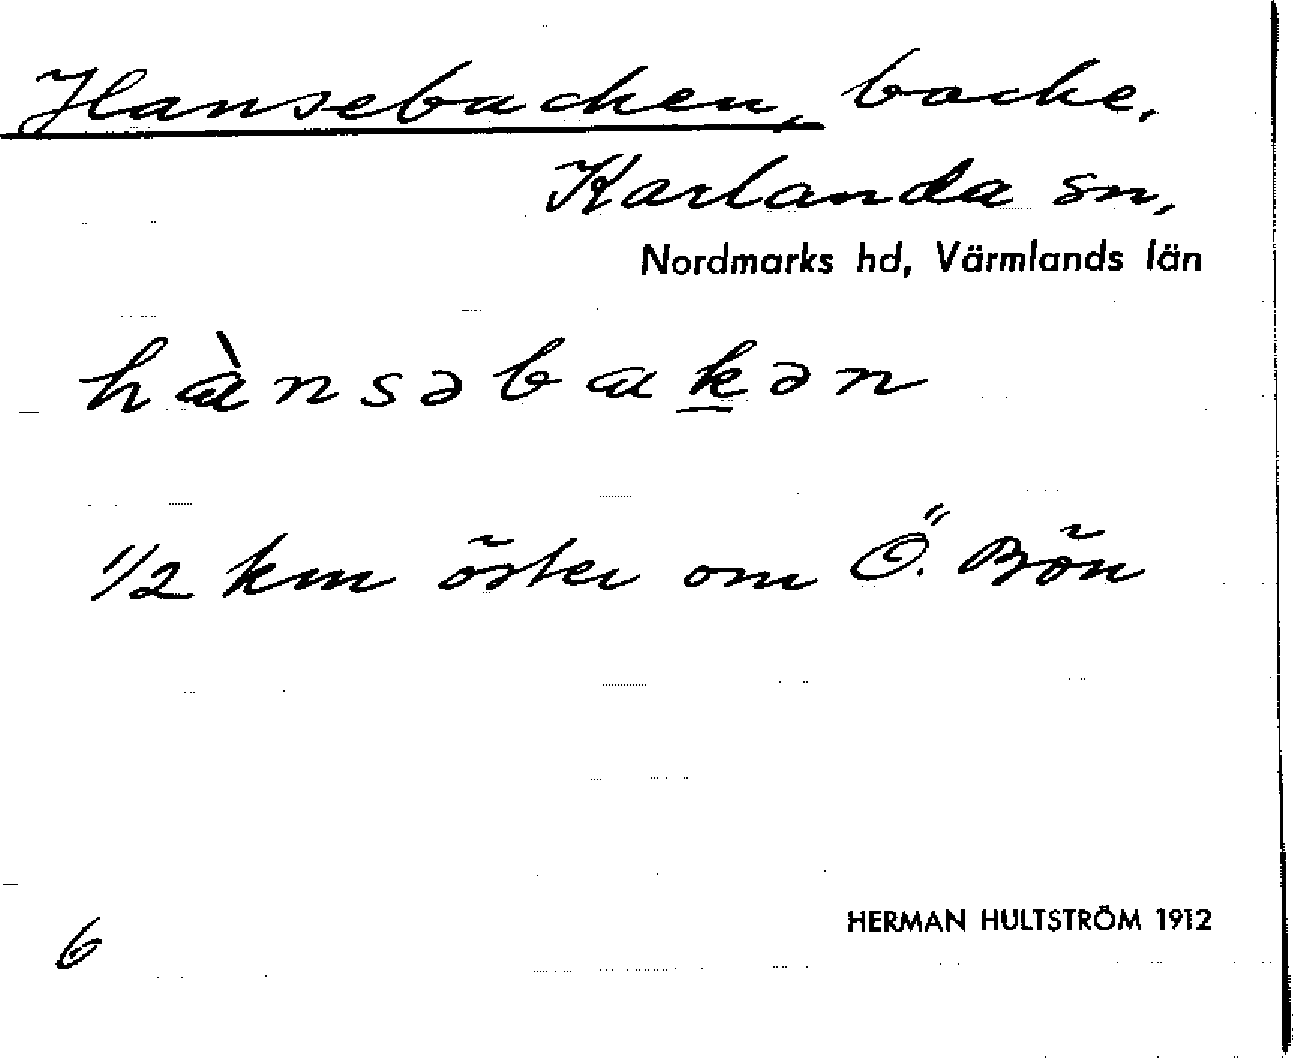 Hansebacken, backe,
Karlanda sn,
Nordmarks hd, Värmlands län
hànsəbakən
1/2 km öster om Ö. Bön
6
HERMAN HULTSTRÖM 1912